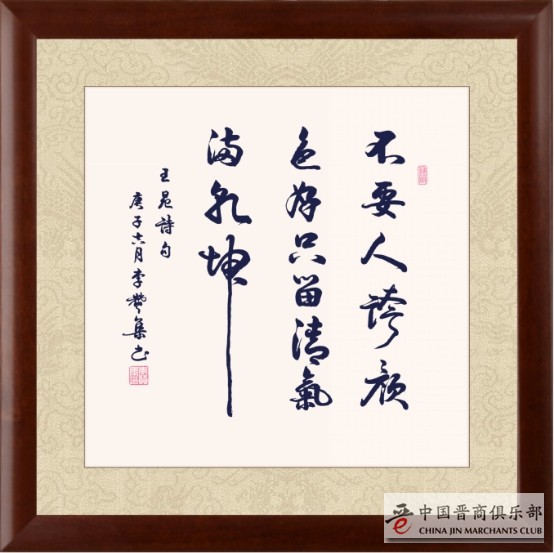 不要人誇顏
色好只留清氣
滿乾坤
王冕詩句
庚子六月李
集書
中国晋商俱乐部
CHINA JIN MARCHANTS CLUB